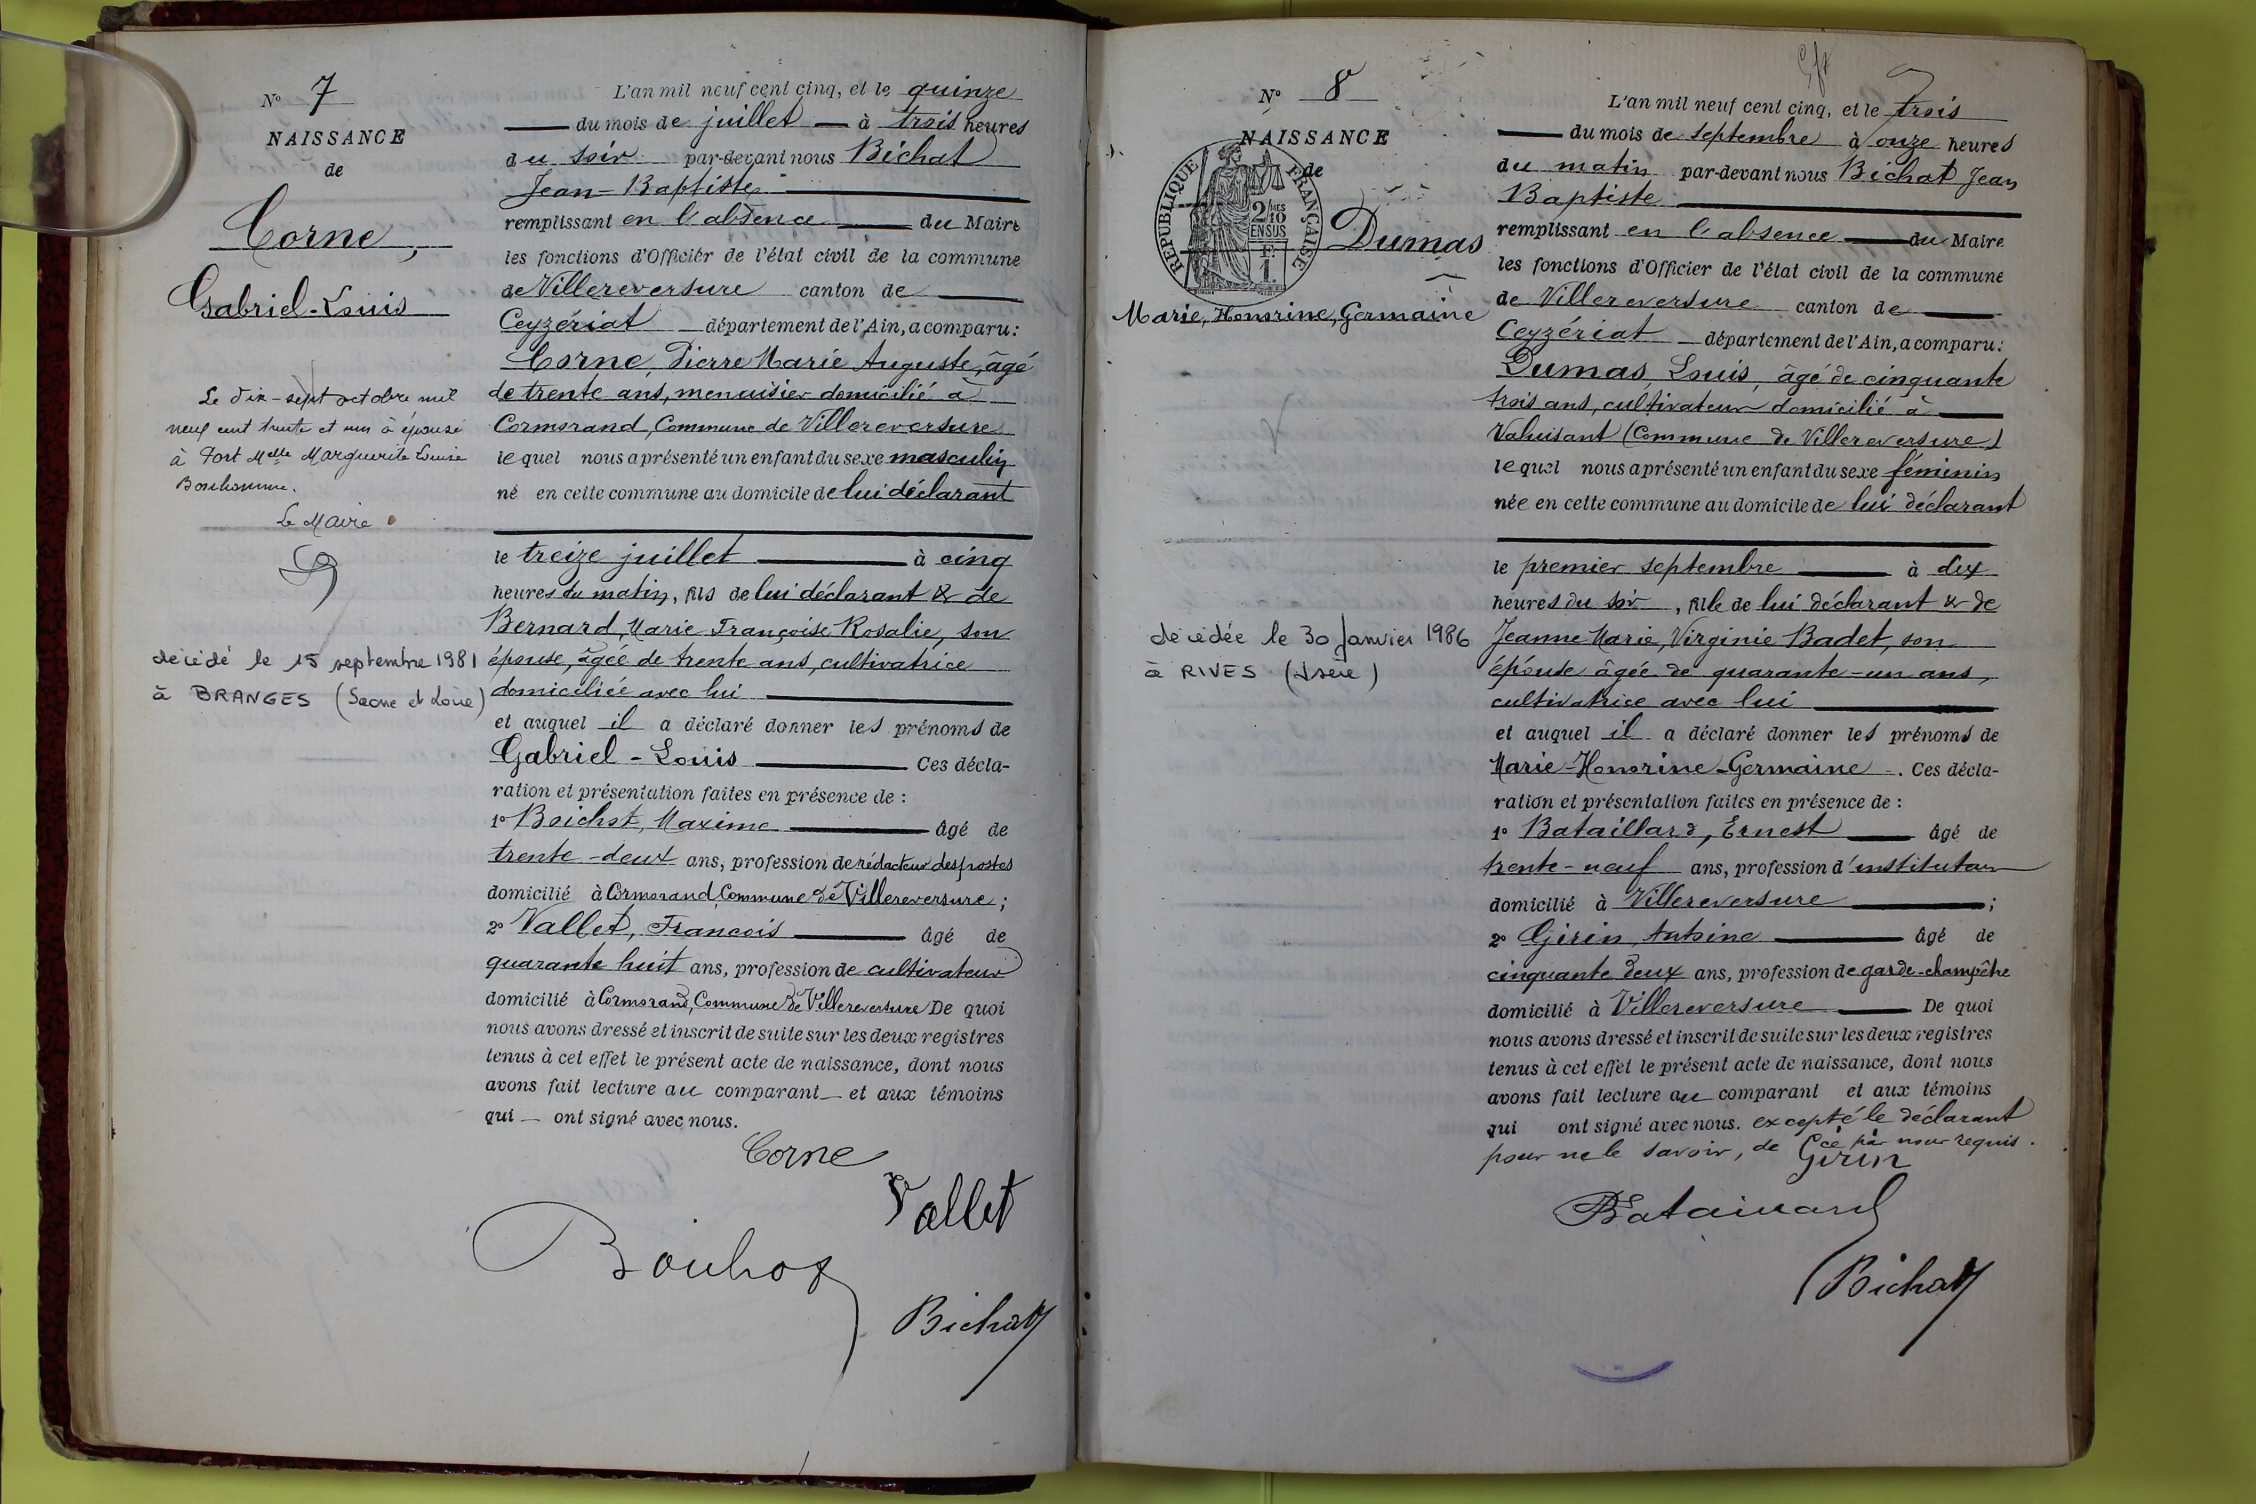 N° 7
NAISSANCE
de
Corne,
Gabriel-Louis
Le dix-sept octobre mil
neuf cent trente et un à épousé
à Fort Melle Marguerite Louise
Bonhomme.
Le Maire
décédé le 15 septembre 1981
à BRANGES (Saone et Loire)
L'an mil neuf cent cinq, et le quinze
du mois de juillet à trois heures
du soir par-devant nous Bichat
Jean-Baptiste
remplissant en l'absence du Maire
les fonctions d'Officier de l'état civil de la commune
de Villereversure canton de
Ceyzériat département de l'Ain, a comparu:
Corne, Pierre Marie Auguste, âgé
de trente ans, menuisier domicilié à
Cormorand, Commune de Villereversure
lequel nous a présenté un enfant du sexe masculin
né en cette commune au domicile de lui déclarant
le treize juillet à cinq
heures du matin, fils de lui déclarant & de
Bernard, Marie Françoise Rosalie, son
épouse, âgée de trente ans, cultivatrice
domiciliée avec lui
et auquel il a déclaré donner les prénoms de
Gabriel-Louis Ces décla-
ration et présentation faites en présence de :
1° Boichot, Maxime âgé de
trente-deux ans, profession de rédacteur des postes
domicilié à Cormorand, Commune de Villereversure ;
2° Vallet, François âgé de
quarante huit ans, profession de cultivateur
domicilié à Cormorand, Commune de Villereversure De quoi
nous avons dressé et inscrit de suite sur les deux registres
tenus à cet effet le présent acte de naissance, dont nous
avons fait lecture au comparant et aux témoins
qui ont signé avec nous.
Corne
Vallet
Boichot
Bichat
N° 8
NAISSANCE
de
RÉPUBLIQUE FRANÇAISE
2/10
EN SUS
F.
1.
Dumas
Marie, Honorine, Germaine
décédée le 30 Janvier 1986
à RIVES (Isère)
L'an mil neuf cent cinq, et le trois
du mois de septembre à onze heures
du matin par-devant nous Bichat Jean
Baptiste
remplissant en l'absence du Maire
les fonctions d'Officier de l'état civil de la commune
de Villereversure canton de
Ceyzériat département de l'Ain, a comparu:
Dumas, Louis, âgé de cinquante
trois ans, cultivateur domicilié à
Valuisant (Commune de Villereversure)
lequel nous a présenté un enfant du sexe féminin
née en cette commune au domicile de lui déclarant
le premier septembre à dix
heures du soir, fille de lui déclarant & de
Jeanne Marie, Virginie Badet, son
épouse âgée de quarante-un ans,
cultivatrice avec lui
et auquel il a déclaré donner les prénoms de
Marie-Honorine-Germaine. Ces décla-
ration et présentation faites en présence de :
1° Bataillard, Ernest âgé de
trente-neuf ans, profession d'instituteur
domicilié à Villereversure ;
2° Girin, Antoine âgé de
cinquante deux ans, profession de garde-champêtre
domicilié à Villereversure De quoi
nous avons dressé et inscrit de suite sur les deux registres
tenus à cet effet le présent acte de naissance, dont nous
avons fait lecture au comparant et aux témoins
qui ont signé avec nous. excepté le déclarant
pour ne le savoir, de ce par nous requis.
Girin
Bataillard
Bichat